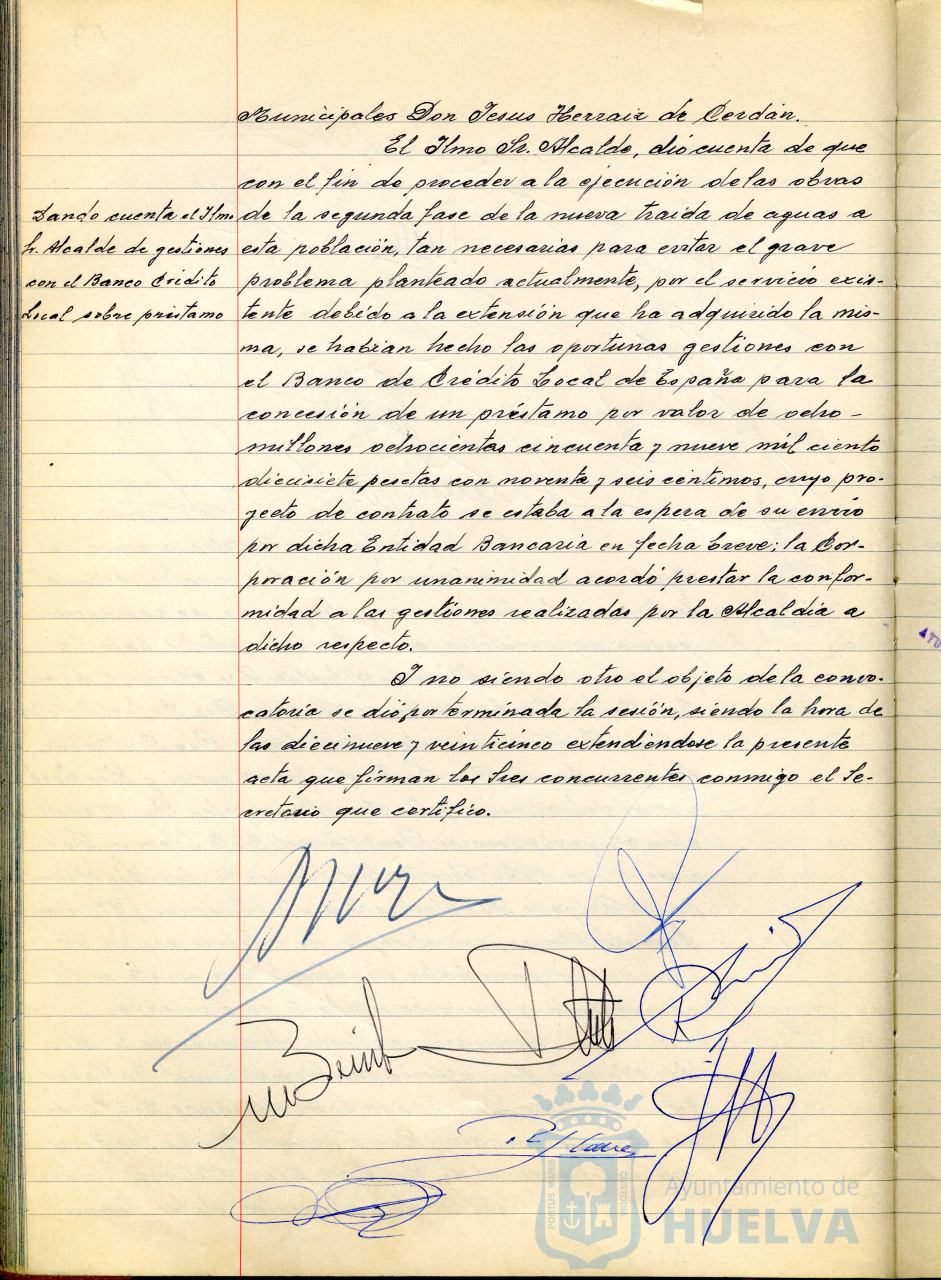 Municipales Don Jesus Herraiz de Cerdán.
El Ilmo Sr. Alcalde, dió cuenta de que
con el fin de proceder a la ejecución de las obras
de la segunda fase de la nueva traida de aguas a
esta población, tan necesarias para evitar el grave
problema planteado actualmente, por el servicio exis-
tente debido a la extensión que ha adquirido la mis-
ma, se habian hecho las oportunas gestiones con
el Banco de Crédito Local de España para la
concesión de un préstamo por valor de ocho-
millones ochocientas cincuenta y nueve mil ciento
diecisiete pesetas con noventa y seis centimos, cuyo pro-
yecto de contrato se estaba a la espera de su envio
por dicha Entidad Bancaria en fecha breve; la Cor-
poración por unanimidad acordó prestar la confor-
midad a las gestiones realizadas por la Alcaldia a
dicho respecto.
Y no siendo otro el objeto de la convo-
catoria se dió por terminada la sesión, siendo la hora de
las diecinueve y veinticinco extendiendose la presente
acta que firman los Sres concurrentes conmigo el Se-
cretario que certifico.
Dando cuenta el Ilmo
Sr. Alcalde de gestiones
con el Banco Crédito
Local sobre préstamo
PORTUS MARIS
CUSTODIA
Ayuntamiento de
HUELVA